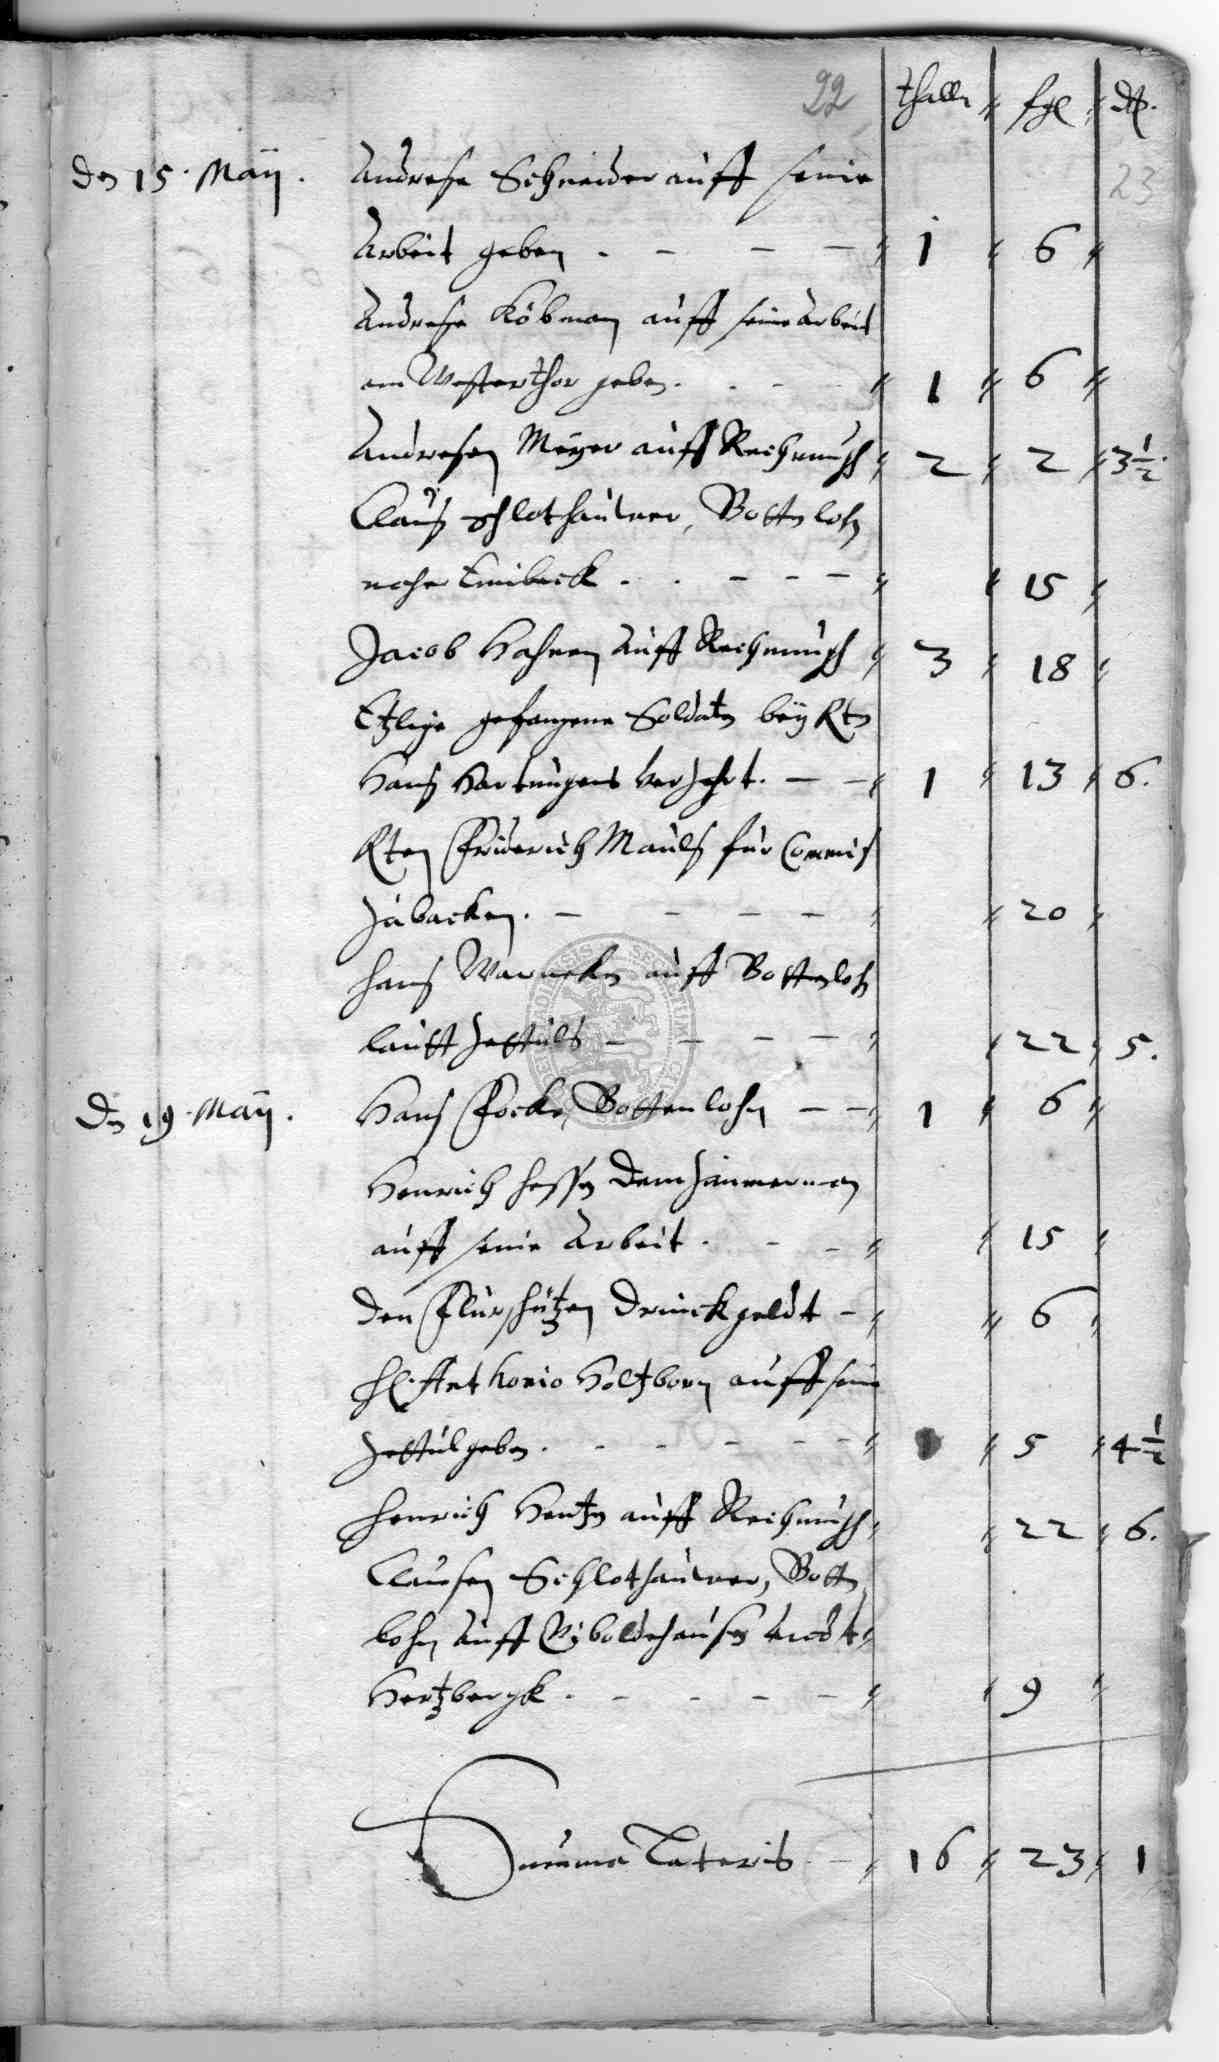 22 thaller fgl ₰.
23
Den 15. Maÿ. Andrese Schneider auff seine
Arbeit geben. - - - 1 6
Andrese Köbman auff seine Arbeit
am Westerthor geben. - - - 1 6
Andresen Meÿer auff Rechnungh 2 2 3½
Claus Schlothauwer, Bottenlohn
naher Einbeck. - - - 15
Jacob Hasnen auff Rechnungh 3 18
Etzlige gefangene Soldaten beÿ Rten
Hans Hartungens verzehrt. - - 1 13 6.
Rten Friderich Mauls für Commis
zu backen. - - - - 20
Hans Warneken auff Bottenlohn
lautt Zettuls - - - - 22 5.
Den 19. Maÿ. Hans Focke, Bottenlohn - - 1 6
Henrich Hessen dem Zimmerman
auff seine Arbeit. - - 15
Den Flurschützen Drinckgeldt - 6
H. Anthonio Holtzborn auff sein
Zettul geben. - - - - - 5 4½
Henrich Hentzen auff Rechnungh 22 6.
Clausen Schlothauwer, Botten
lohn auff Giboldehausen undt
Hertzbergk. - - - - 9
Summa Lateris - 16 23 1